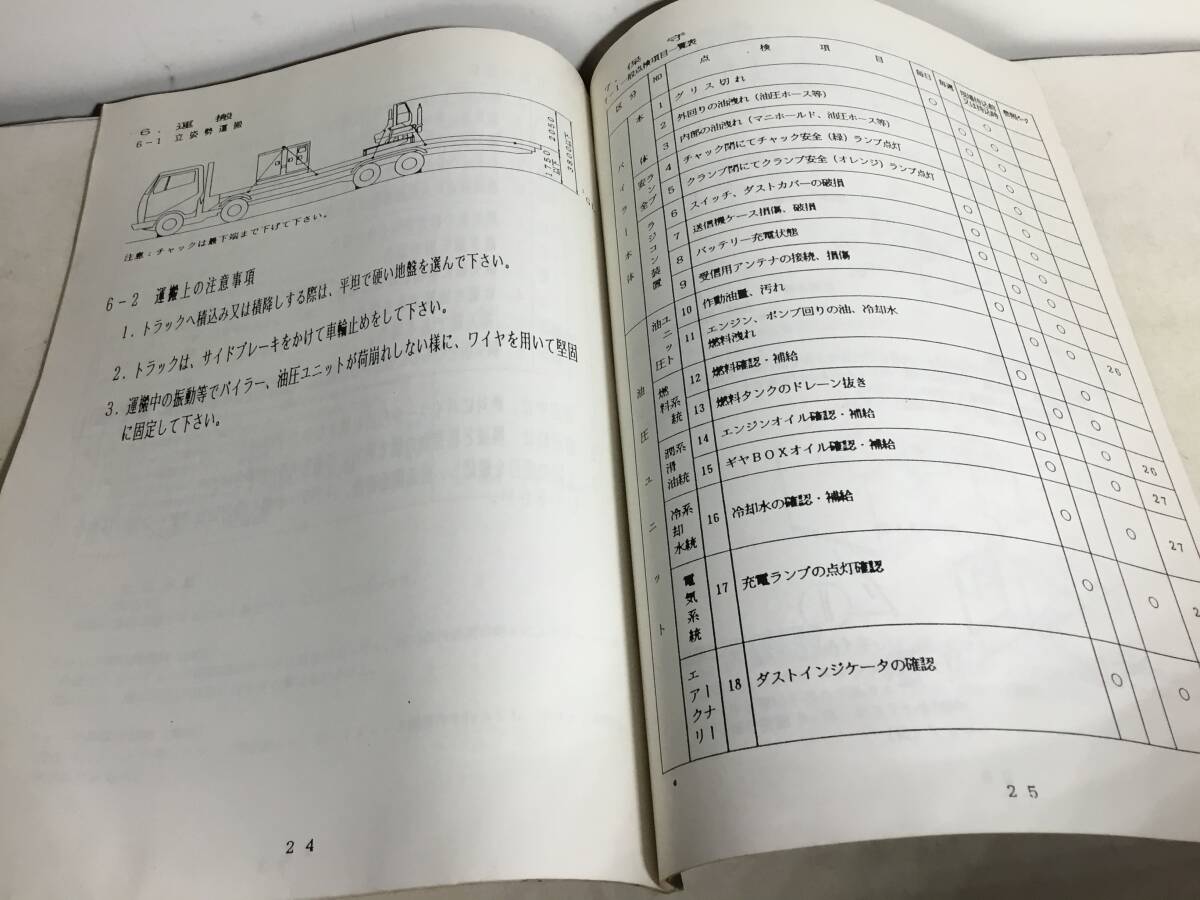 6. 運搬
6-1 立姿勢運搬
1750
以下
2050
3800以下
注意：チャックは最下端まで下げて下さい。
6-2 運搬上の注意事項
1. トラックへ積込み又は積降しする際は、平坦で硬い地盤を選んで下さい。
2. トラックは、サイドブレーキをかけて車輪止めをして下さい。
3. 運搬中の振動等でパイラー、油圧ユニットが荷崩れしない様に、ワイヤを用いて堅固
に固定して下さい。
24
7. 保守
7-1 一般点検項目一覧表
区分 NO 点・検項目 毎日 毎週 参照ページ
パイラー本体
本体
1 グリス切れ ○
2 外回りの油洩れ（油圧ホース等）
3 内部の油洩れ（マニホールド、油圧ホース等）
安全ランプ
4 チャック閉にてチャック安全（緑）ランプ点灯
5 クランプ閉にてクランプ安全（オレンジ）ランプ点灯
ラジコン装置
6 スイッチ、ダストカバーの破損
7 送信機ケース損傷、破損
8 バッテリー充電状態
9 受信用アンテナの接続、損傷
油圧ユニット
油圧ユニット
10 作動油量、汚れ
11 エンジン、ポンプ回りの油、冷却水
燃料洩れ
燃料系統
12 燃料確認・補給 26
13 燃料タンクのドレーン抜き
潤滑油系統
14 エンジンオイル確認・補給
15 ギヤBOXオイル確認・補給 26
冷却水系統
16 冷却水の確認・補給 27
電気系統
17 充電ランプの点灯確認 27
エアークリーナー
18 ダストインジケータの確認
25